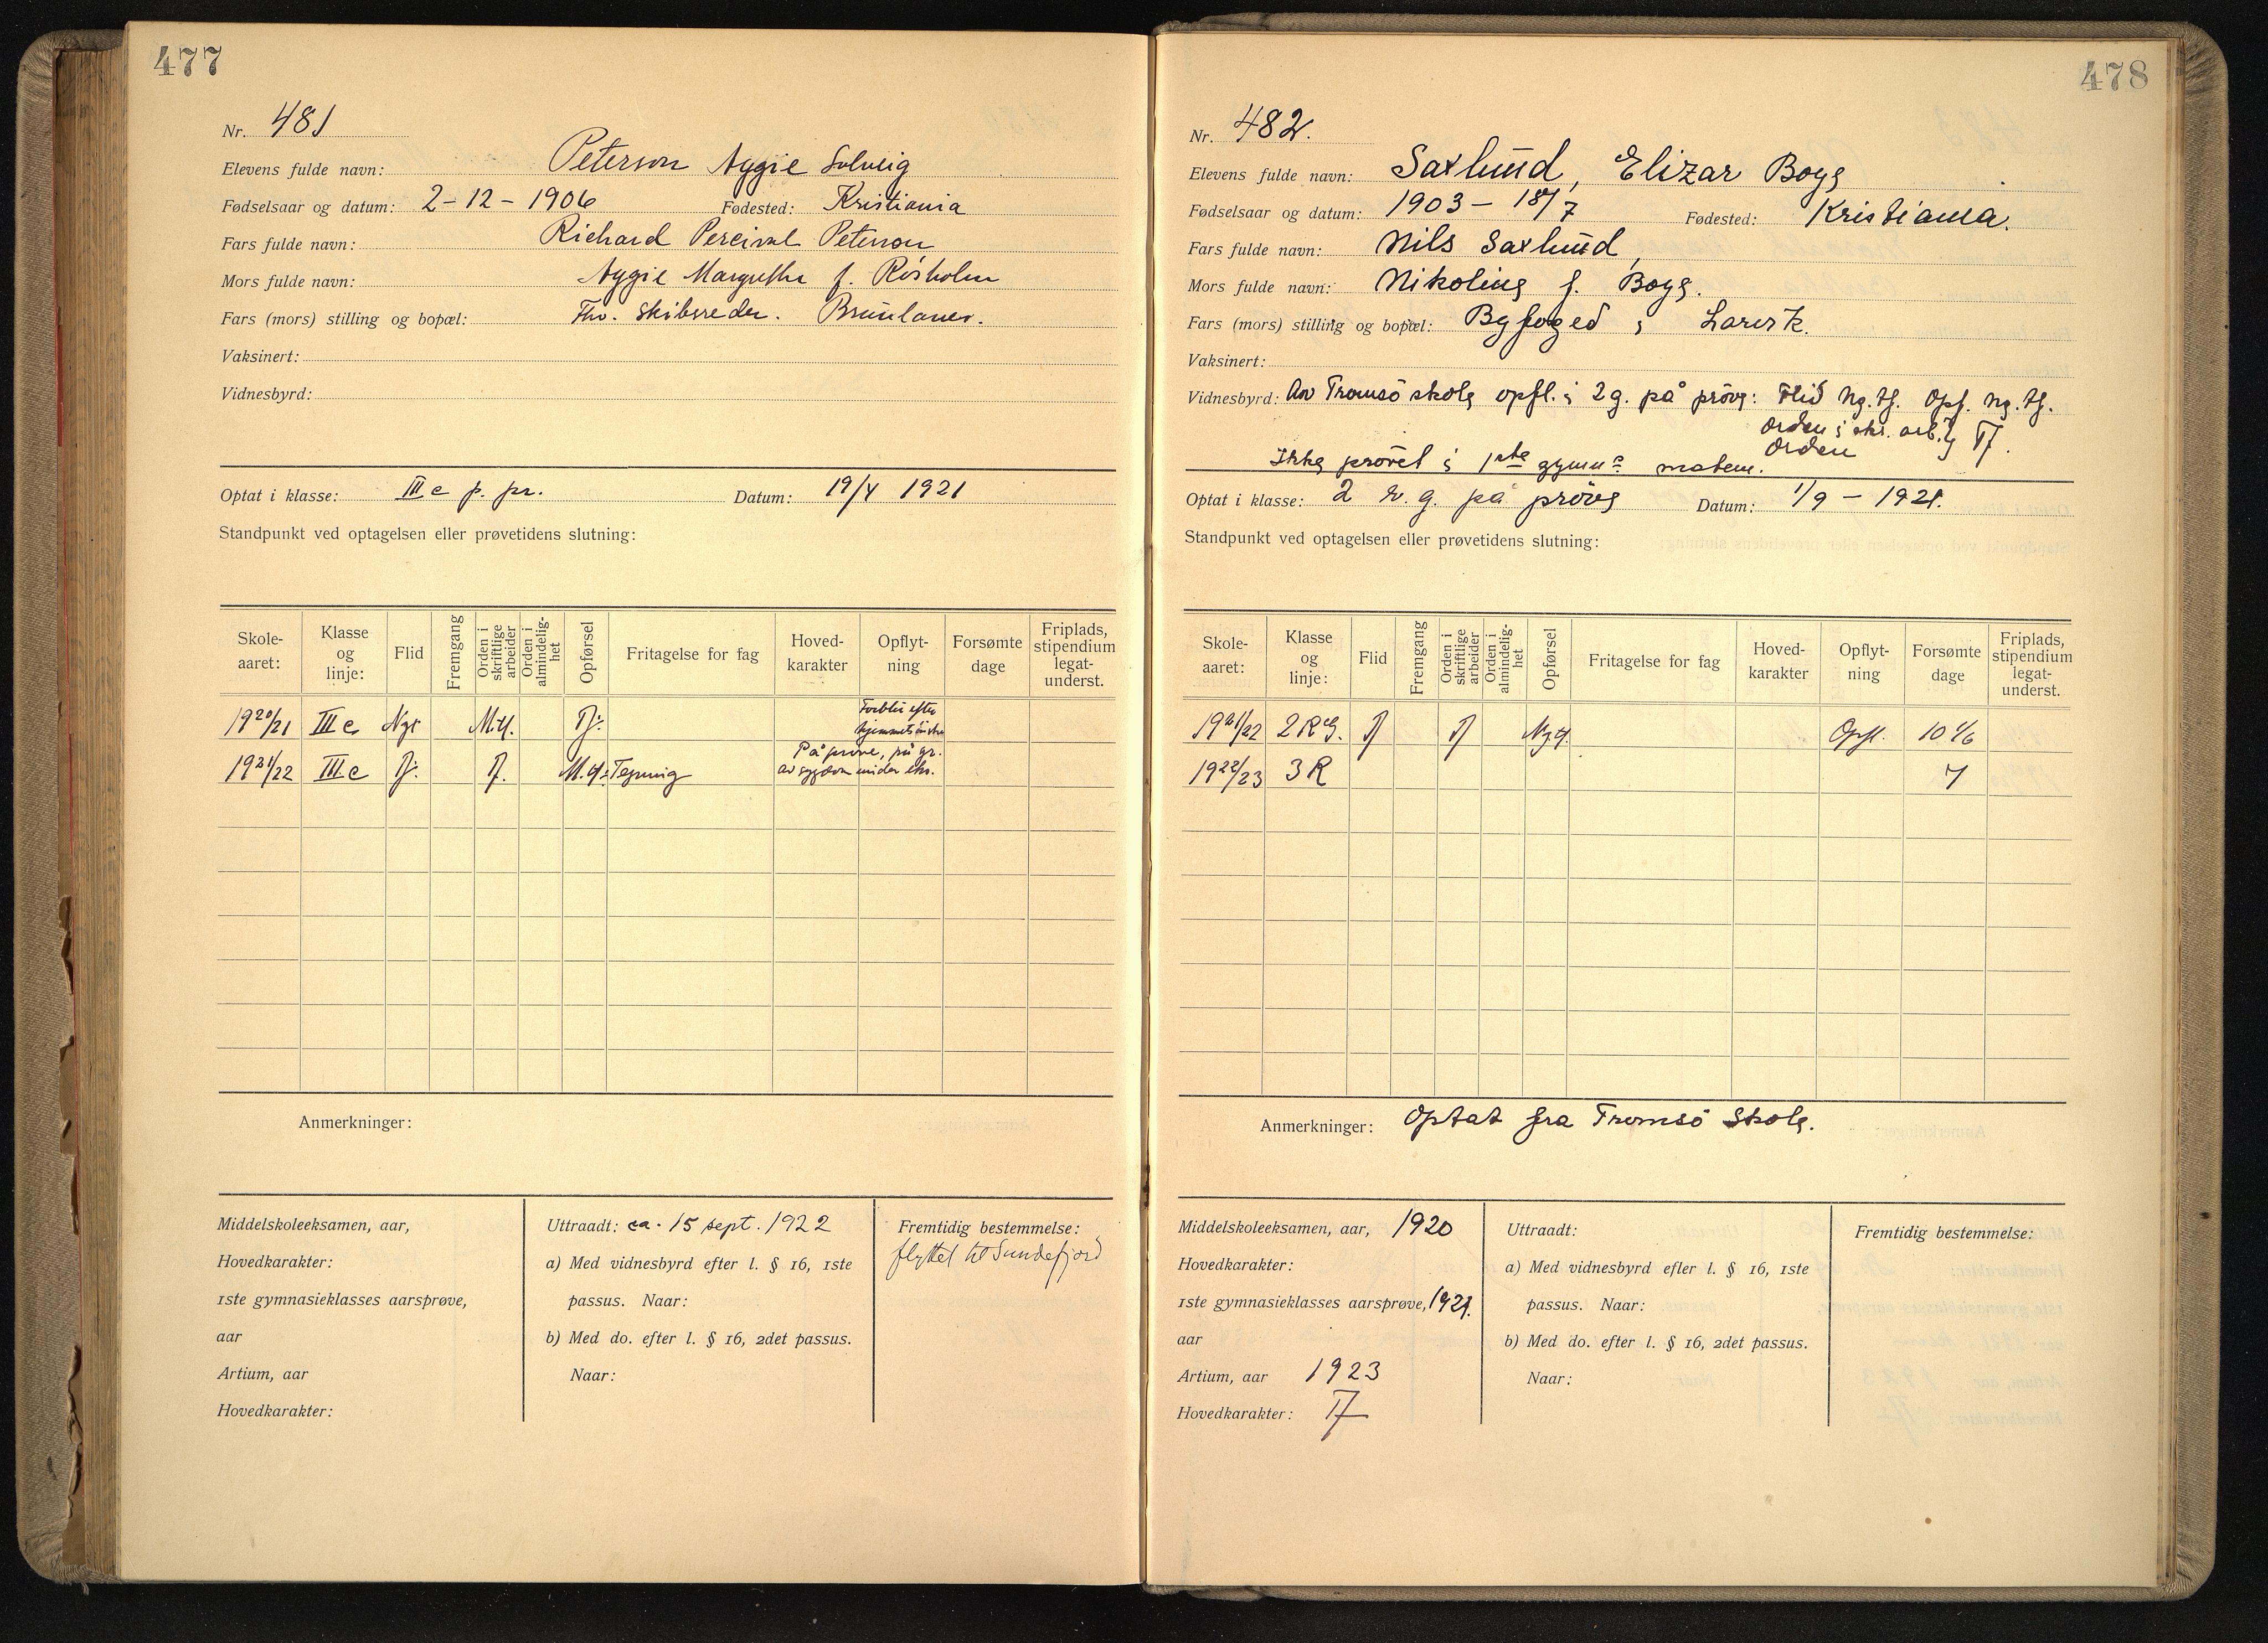 477
Nr. 481
Elevens fulde navn: Peterson Aggie Solveig
Fødselsaar og datum: 2-12-1906 Fødested: Kristiania
Fars fulde navn: Richard Percival Peterson
Mors fulde navn: Aggie Margrethe f. Rösholm
Fars (mors) stilling og bopæl: Fhv. Skibsreder. Brunlanes.
Vaksinert:
Vidnesbyrd:
Optat i klasse: III c p. pr. Datum: 19/4 1921
Standpunkt ved optagelsen eller prøvetidens slutning:
Skole-aaret: Klasse og linje: Flid Fremgang Orden i skriftlige arbeider Orden i almindelig-het Opførsel Fritagelse for fag Hoved-karakter Opflyt-ning Forsømte dage Friplads, stipendium legat-underst.
1920/21 III c Ngt M.tf. Tf. Forblir efter hjemmets önske
1921/22 III c Tf. Tf. M.tf. Tegning På prøve, på gr. av sygdom under eks.
Anmerkninger:
Middelskoleeksamen, aar,
Hovedkarakter:
1ste gymnasieklasses aarsprøve,
aar
Artium, aar
Hovedkarakter:
Uttraadt: ca. 15 sept. 1922
a) Med vidnesbyrd efter l. § 16, 1ste
passus. Naar:
b) Med do. efter l. § 16, 2det passus.
Naar:
Fremtidig bestemmelse:
flyttet til Sandefjord
478
Nr. 482.
Elevens fulde navn: Saxlund, Elizar Boye
Fødselsaar og datum: 1903 - 18/7 Fødested: Kristiania.
Fars fulde navn: Nils Saxlund,
Mors fulde navn: Nikoline f. Boye.
Fars (mors) stilling og bopæl: Byfoged i Larvik.
Vaksinert:
Vidnesbyrd: Av Tromsö skole opfl. i 2 g. på pröve: Flid Ng.tf. Opf. Ng.tf.
Orden i skr. arb.
Orden } Tf.
Ikke prövet i 1ste gymn.s matem.
Optat i klasse: 2 r. g. på pröve Datum: 1/9 - 1921.
Standpunkt ved optagelsen eller prøvetidens slutning:
Skole-aaret: Klasse og linje: Flid Fremgang Orden i skriftlige arbeider Orden i almindelig-het Opførsel Fritagelse for fag Hoved-karakter Opflyt-ning Forsømte dage Friplads, stipendium legat-underst.
1921/22 2 R G. Tf Tf Ng.tf. Opfl. 10 1/6
1922/23 3 R 7
Anmerkninger: Optat fra Tromsö Skole.
Middelskoleeksamen, aar, 1920
Hovedkarakter:
1ste gymnasieklasses aarsprøve, 1921.
aar
Artium, aar 1923
Hovedkarakter: Tf
Uttraadt:
a) Med vidnesbyrd efter l. § 16, 1ste
passus. Naar:
b) Med do. efter l. § 16, 2det passus.
Naar:
Fremtidig bestemmelse: